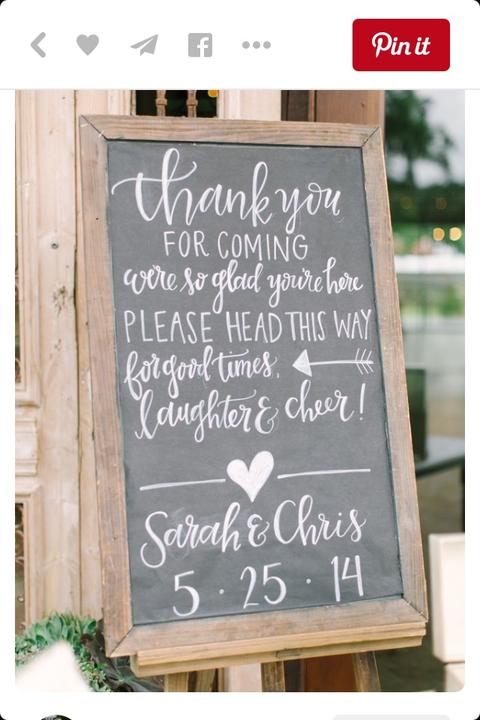 Pin it
thank you
FOR COMING
we're so glad you're here
PLEASE HEAD THIS WAY
for good times,
laughter & cheer!
Sarah & Chris
5 · 25 · 14